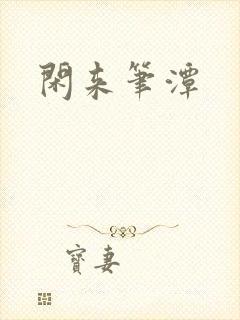 閑来筆潭
寶妻